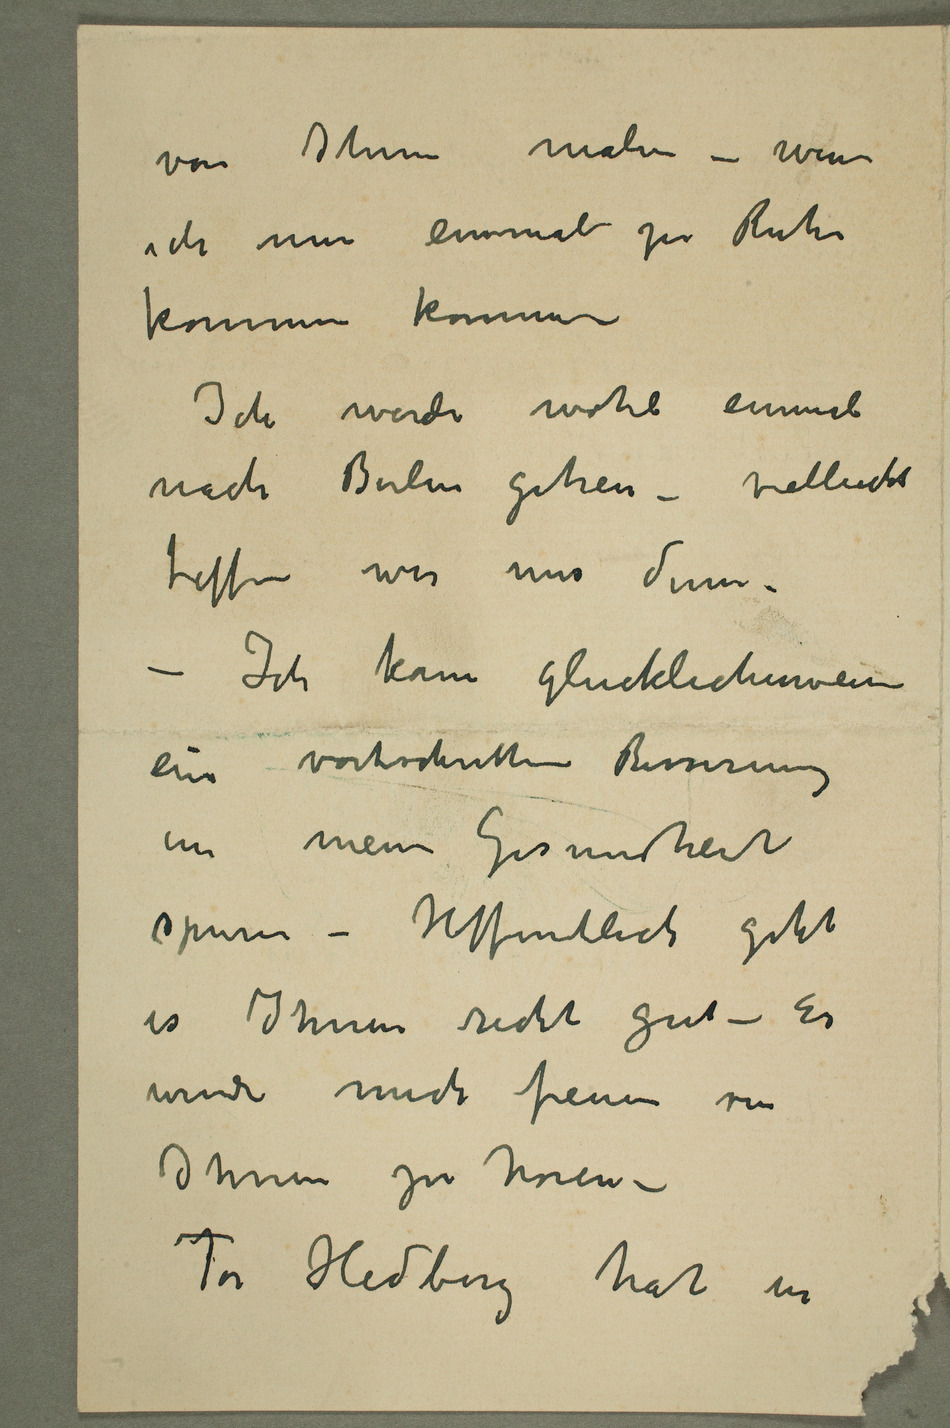 von Ihnen malen – wenn
ich nur einmal zu Ruhe
kommen kommen
Ich werde wohl einmal
nach Berlin gehen – vielleicht
treffen wir uns dann.
– Ich kann glücklicherweise
ein vortschritten Besserung
in meine Gesundheit
spüren – Hoffentlich geht
es Ihnen recht gut – Es
wurde mich freuen von
Ihnen zu horen –
Tor Hedberg hat in